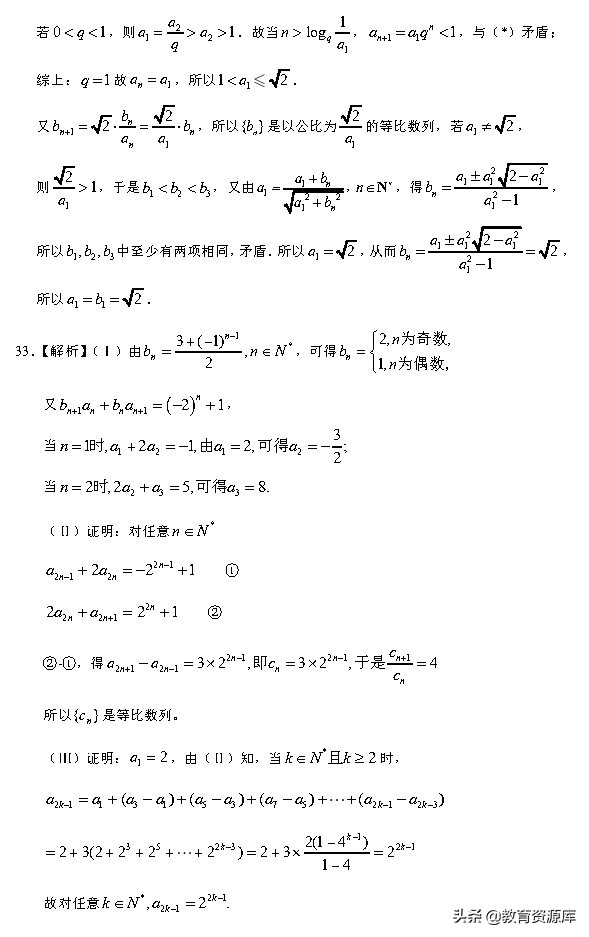 若 0 < q < 1，则 a₁ = a₂/q > a₂ > 1．故当 n > log_q 1/a₁，a_{n+1} = a₁qⁿ < 1，与（*）矛盾；
综上：q = 1 故 a_n = a₁，所以 1 < a₁ ⩽ √2．
又 b_{n+1} = √2·b_n/a_n = √2/a₁·b_n，所以{b_n}是以公比为 √2/a₁ 的等比数列，若 a₁ ≠ √2，
则 √2/a₁ > 1，于是 b₁ < b₂ < b₃，又由 a₁ = (a₁ + b_n)/√(a₁² + b_n²)，n ∈ N*，得 b_n = (a₁ ± a₁²√(2 − a₁²))/(a₁² − 1)，
所以 b₁, b₂, b₃ 中至少有两项相同，矛盾．所以 a₁ = √2，从而 b_n = (a₁ ± a₁²√(2 − a₁²))/(a₁² − 1) = √2，
所以 a₁ = b₁ = √2．
33.【解析】（Ⅰ）由 b_n = (3 + (−1)^{n−1})/2, n ∈ N*，可得 b_n = {2, n为奇数, 1, n为偶数,
又 b_{n+1}a_n + b_na_{n+1} = (−2)ⁿ + 1，
当 n = 1时, a₁ + 2a₂ = −1, 由a₁ = 2, 可得a₂ = −3/2;
当 n = 2时, 2a₂ + a₃ = 5, 可得a₃ = 8.
（Ⅱ）证明：对任意 n ∈ N*
a_{2n−1} + 2a_{2n} = −2^{2n−1} + 1 ①
2a_{2n} + a_{2n+1} = 2^{2n} + 1 ②
②-①，得 a_{2n+1} − a_{2n−1} = 3 × 2^{2n−1}, 即c_n = 3 × 2^{2n−1}, 于是 c_{n+1}/c_n = 4
所以{c_n}是等比数列。
（Ⅲ）证明：a₁ = 2，由（Ⅱ）知，当 k ∈ N*且k ≥ 2 时，
a_{2k−1} = a₁ + (a₃ − a₁) + (a₅ − a₃) + (a₇ − a₅) + ⋯ + (a_{2k−1} − a_{2k−3})
= 2 + 3(2 + 2³ + 2⁵ + ⋯ + 2^{2k−3}) = 2 + 3 × 2(1 − 4^{k−1})/(1 − 4) = 2^{2k−1}
故对任意 k ∈ N*, a_{2k−1} = 2^{2k−1}.
头条 @教育资源库